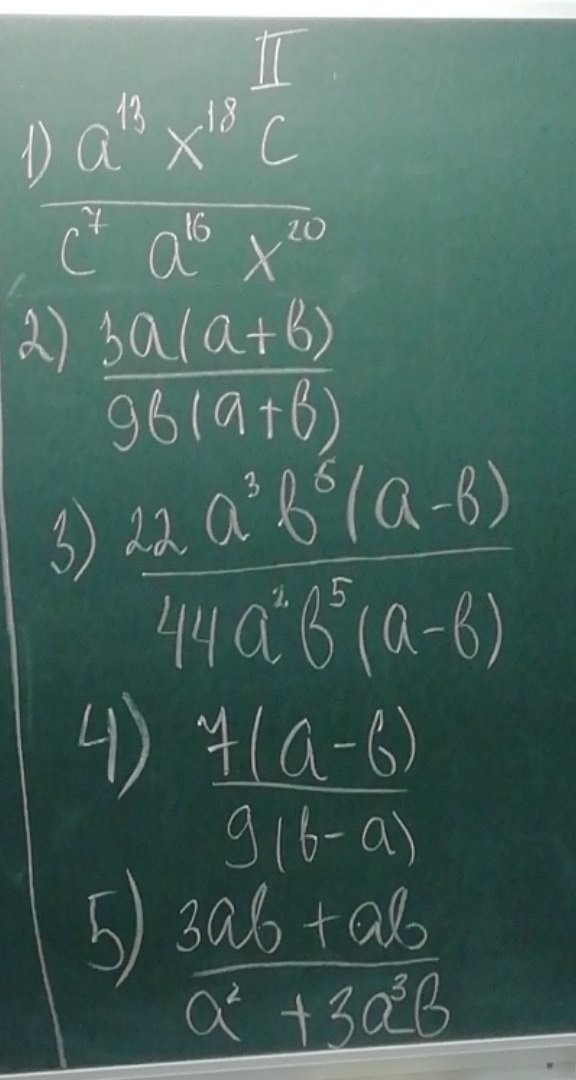 II
1) a¹³ x¹⁸ c
c⁷ a¹⁶ x²⁰
2) 3a(a+b)
9b(a+b)
3) 22 a³ b⁶ (a-b)
44 a² b⁵ (a-b)
4) 7(a-b)
9(b-a)
5) 3ab + ab
a² + 3a³b